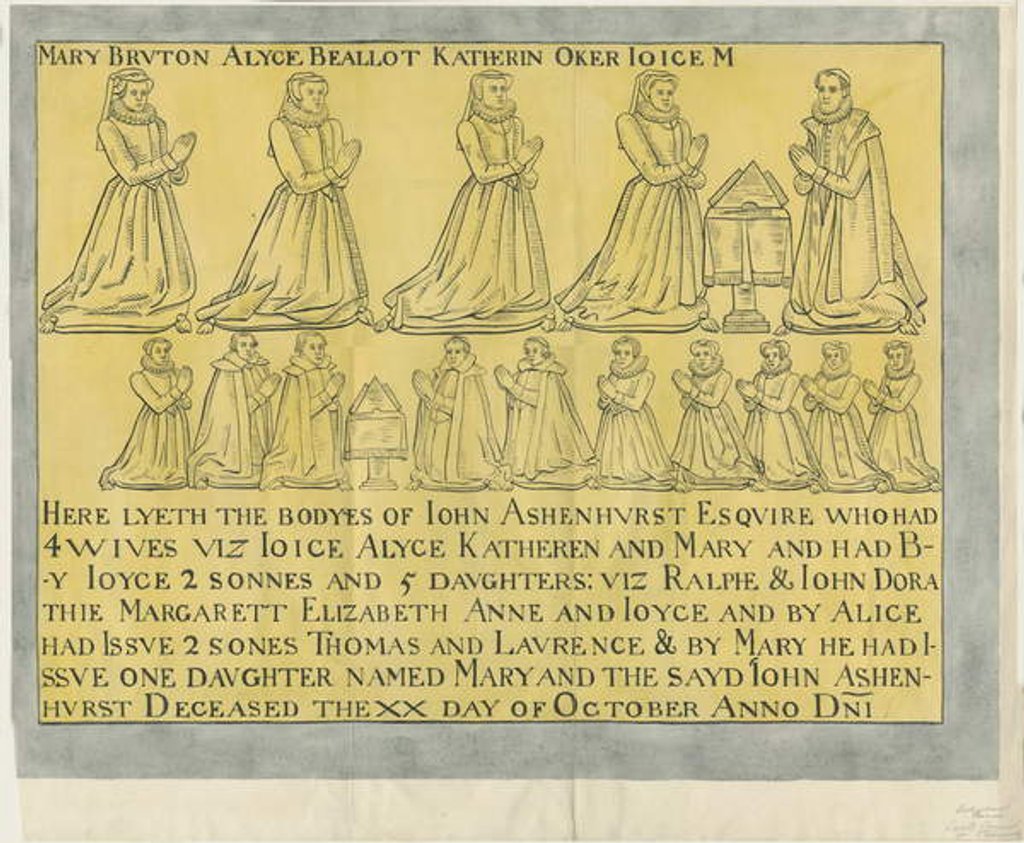 MARY BRVTON ALYCE BEALLOT KATHERIN OKER IOICE M
HERE LYETH THE BODYES OF IOHN ASHENHVRST ESQVIRE WHO HAD
4 WIVES VIZ IOICE ALYCE KATHEREN AND MARY AND HAD B-
-Y IOYCE 2 SONNES AND 5 DAVGHTERS: VIZ RALPHE & IOHN DORA
THIE MARGARETT ELIZABETH ANNE AND IOYCE AND BY ALICE
HAD ISSVE 2 SONES THOMAS AND LAVRENCE & BY MARY HE HAD I-
SSVE ONE DAVGHTER NAMED MARY AND THE SAYD IOHN ASHEN-
HVRST DECEASED THE XX DAY OF OCTOBER ANNO DNĪ